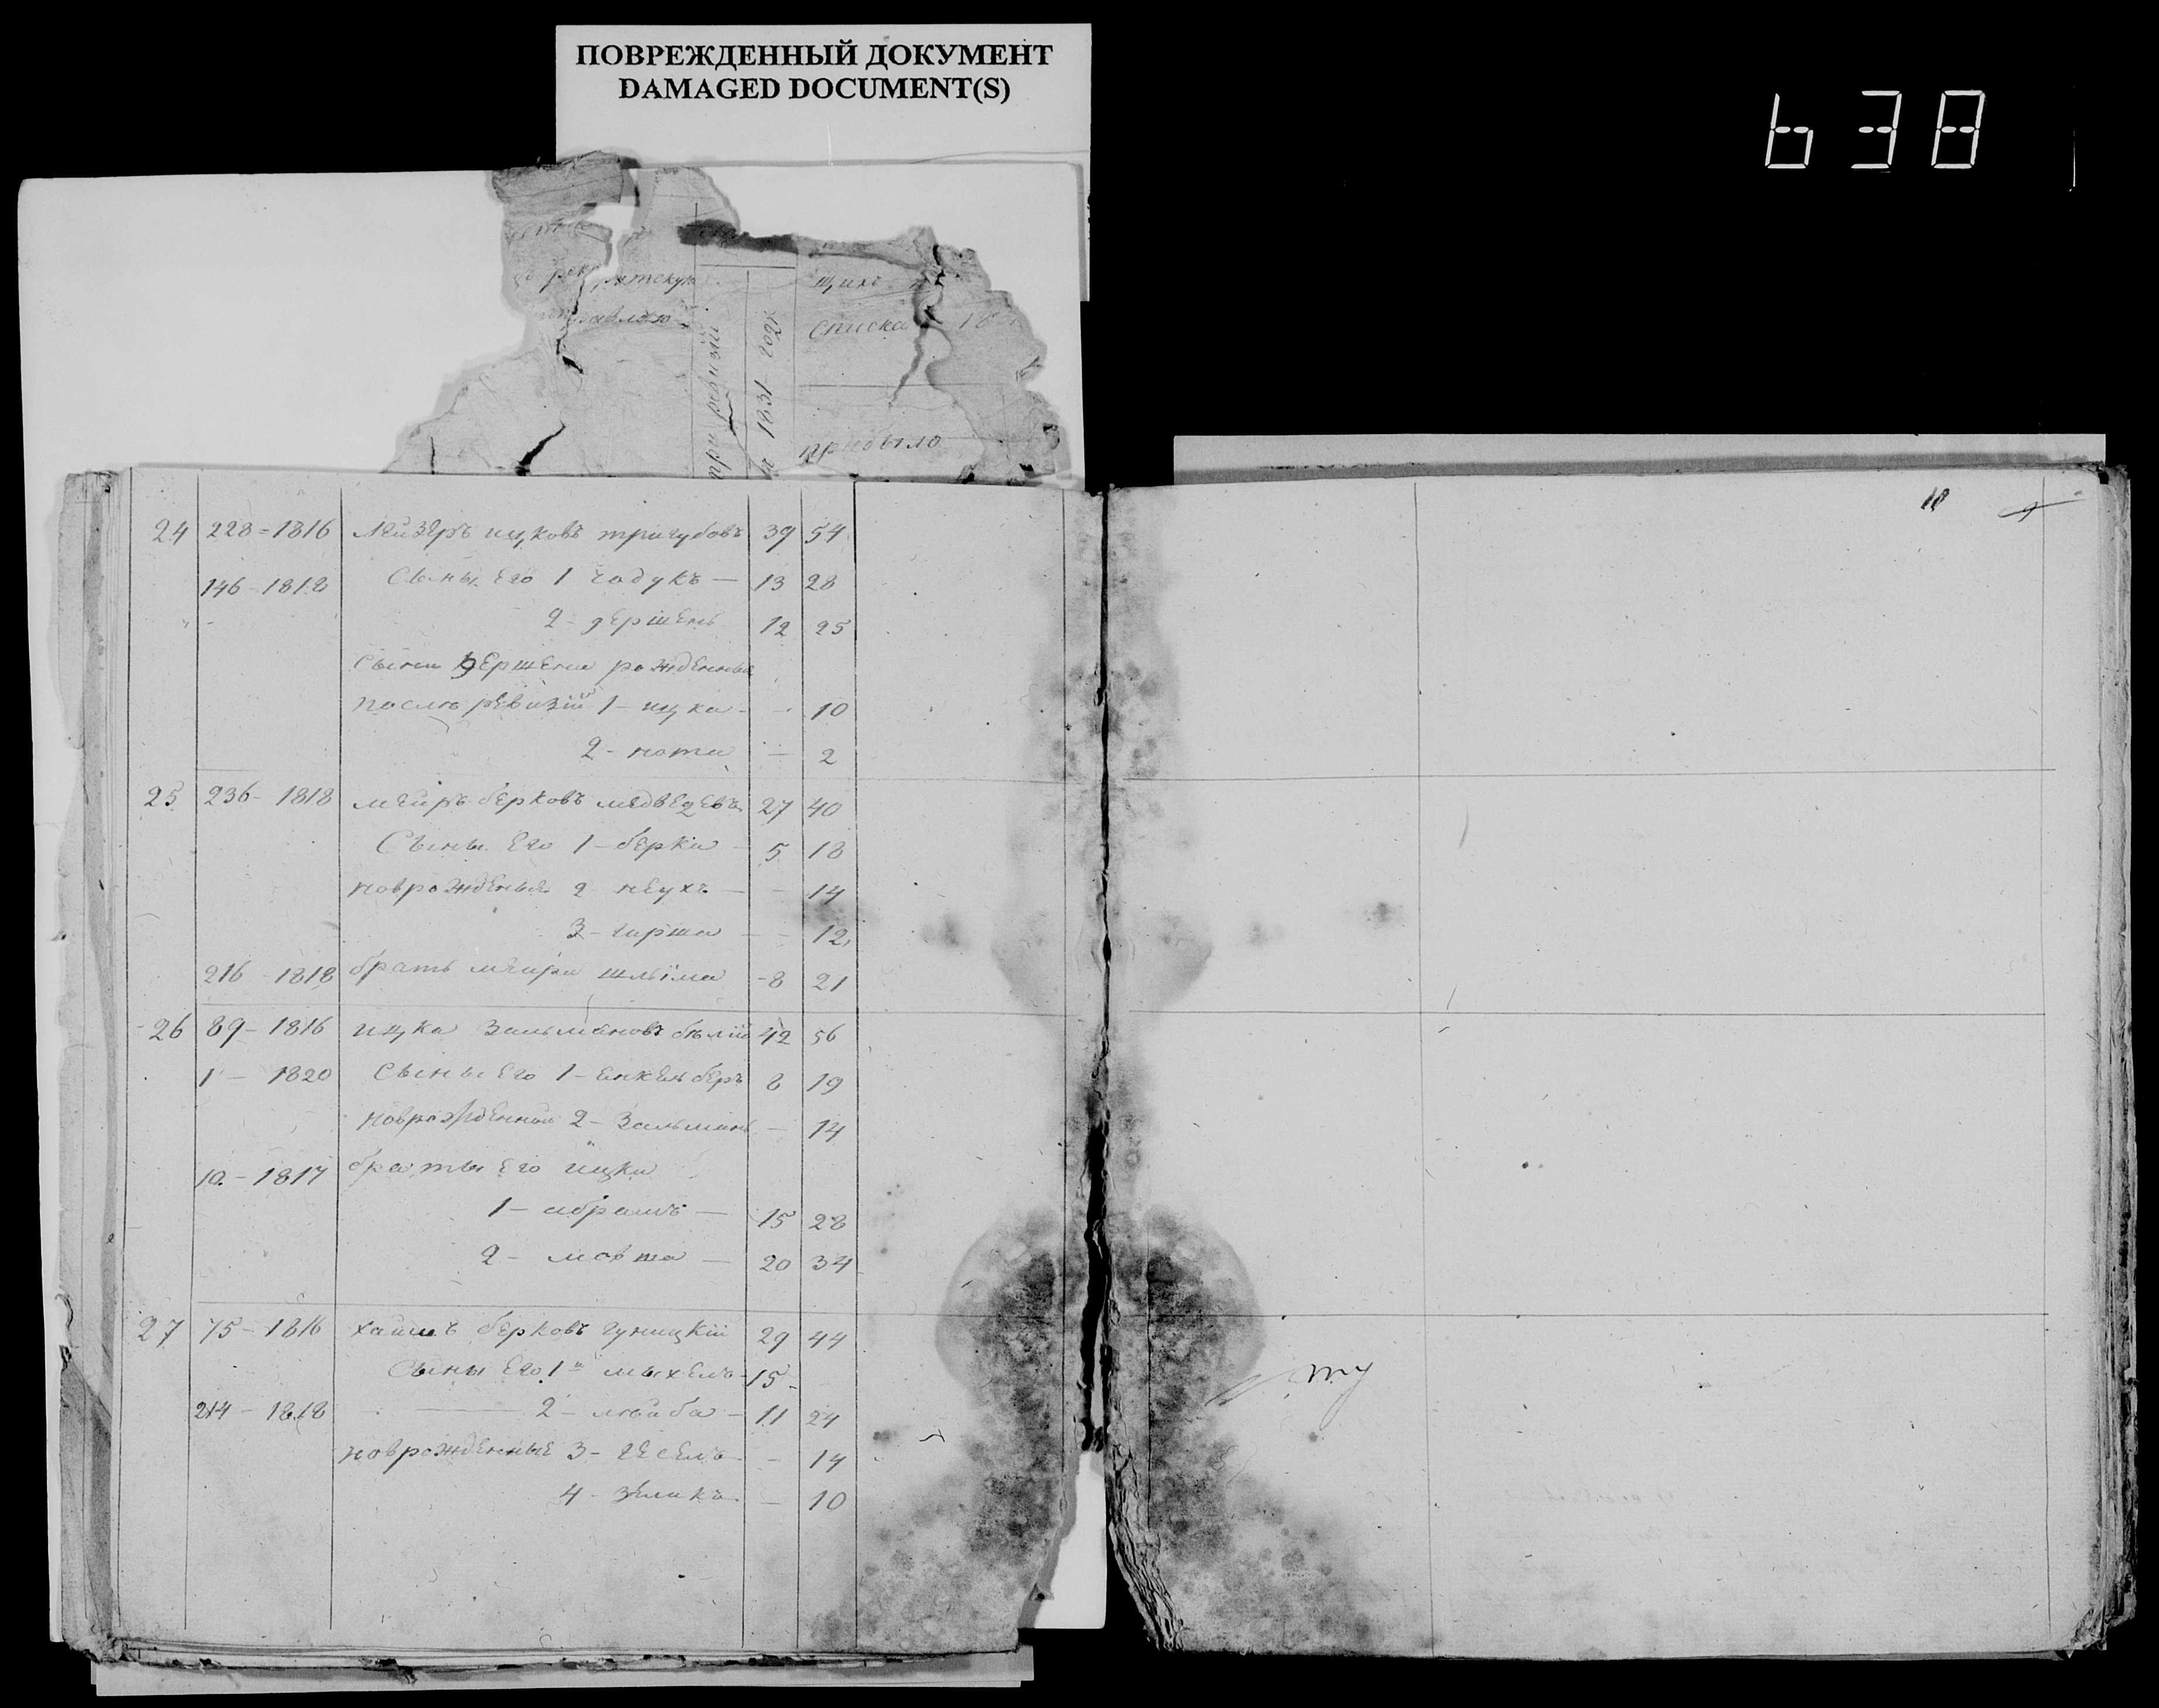 ПОВРЕЖДЕННЫЙ ДОКУМЕНТ
DAMAGED DOCUMENT(S)
638
щихъ
списка
при ревизiи
1831 года
прибыло
18
24 228=1816 Лейзеръ ицковъ тригубовъ 39 54
146-1818 Сыны Его 1 — 13 28
2- гершень 12 25
Сыны гершена рожденные
после ревизiи 1- ицка - - 10
2- нота — 2
25 236-1818 меиръ берковъ медведевъ 27 40
Сыны Его 1-берка 5 18
новрожденые 2 неухъ — - 14
3- гирша - - 12
216-1818 братъ меира шлiома -8 21
26 89-1816 ицка зальмановъ белiй 42 56
1-1820 Сыны Его 1- беръ 8 19
новрожденный 2- Зальманъ - 14
10-1817 браты его ицки
1- абрамъ — 15 28
2- мовша — 20 34
27 75-1816 хаимъ берковъ гуницкiй 29 44
Сыны Его 1й мыхель-15-
214-1818 2- лейба - 11 24
новрожденные 3- гесель - 14
4- зеликъ - 10